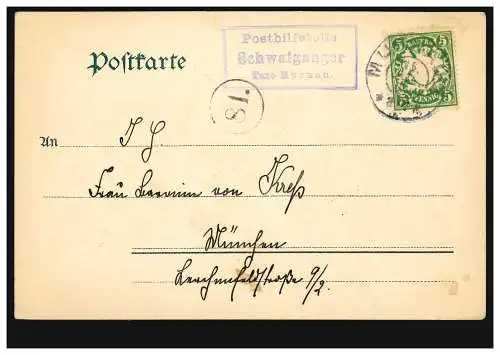 Posthilfstelle
Schwaiganger
Taxe Murnau.
Postkarte
BAYERN
5 5
PFENNIG
MU
81.
An
I H.
Frau Baronin von Kreß
München
Lerchenfeldstraße 9/2.